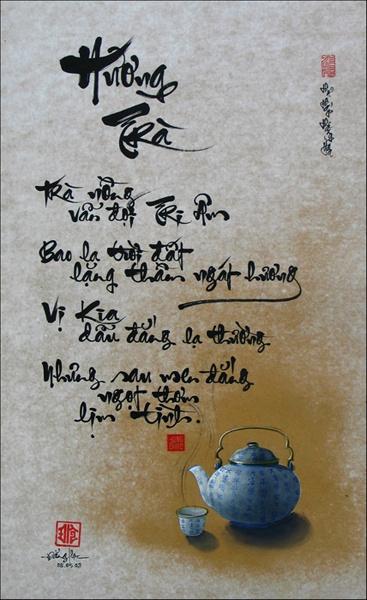 Hương
Trà
Trà nồng
vẫn đợi Tri Âm
Bao la trời đất
lặng thầm ngát hương
Vị Kia
dẫu đắng lạ thường
Nhưng sau men đắng
ngọt thơm
lịm tình.